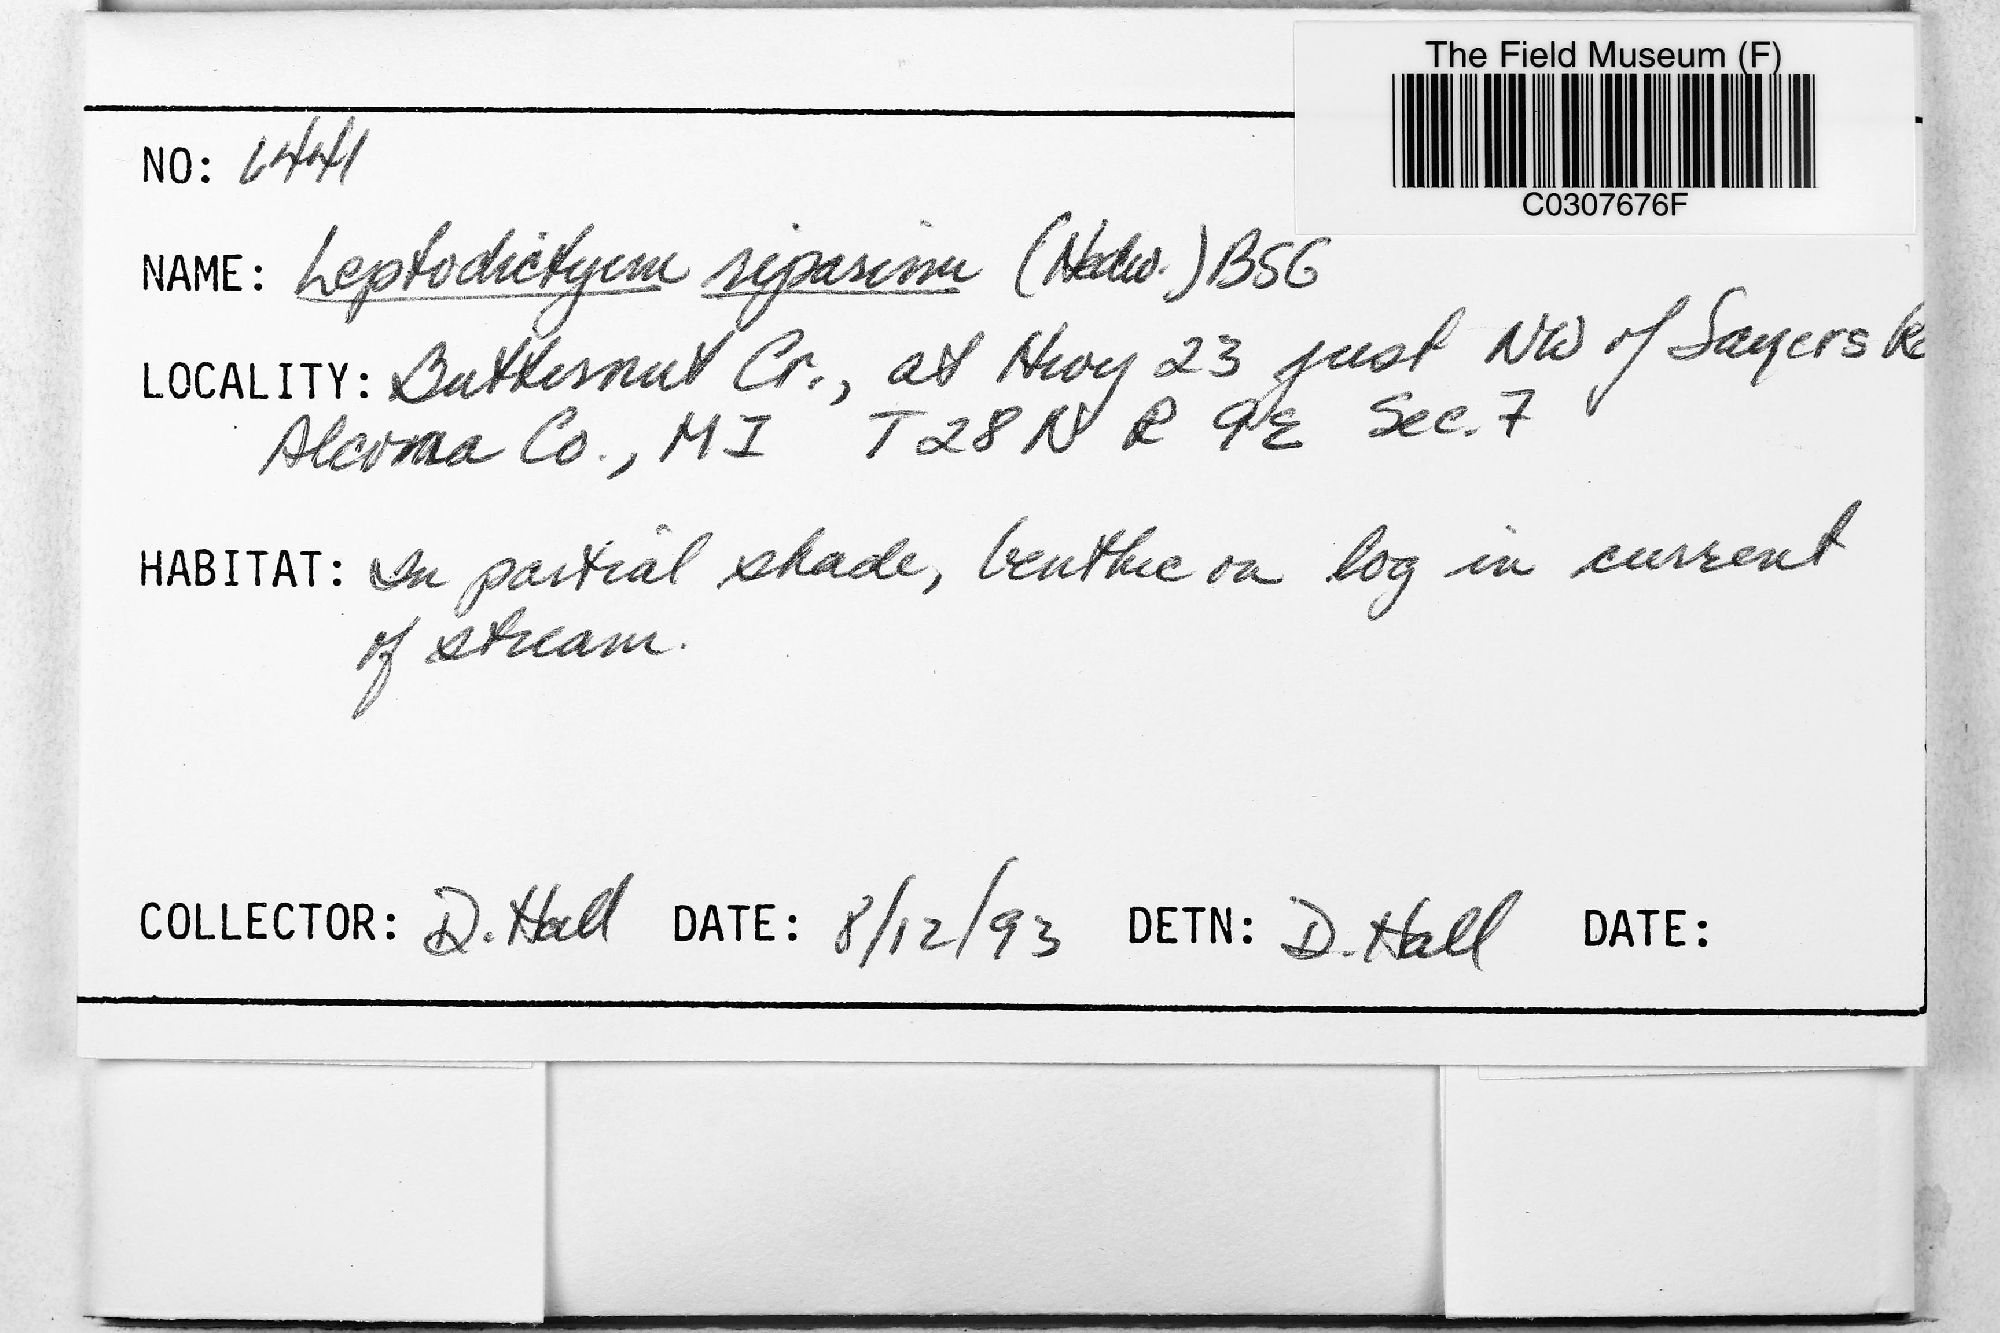 The Field Museum (F)
C0307676F
NO: 1441
NAME: Leptodictyum riparium (Hedw.) BSG
LOCALITY: Butternut Cr., at Hwy 23 just NW of Sayers
Alcona Co., MI T28N R 9E Sec. 7
HABITAT: In partial shade, benthic on log in current
of stream.
COLLECTOR: D. Hall DATE: 8/12/93 DETN: D. Hall DATE: